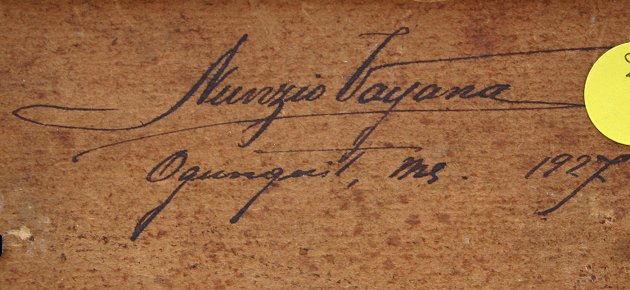 Nunzio Vayana
Ogunquit, Me. 1927